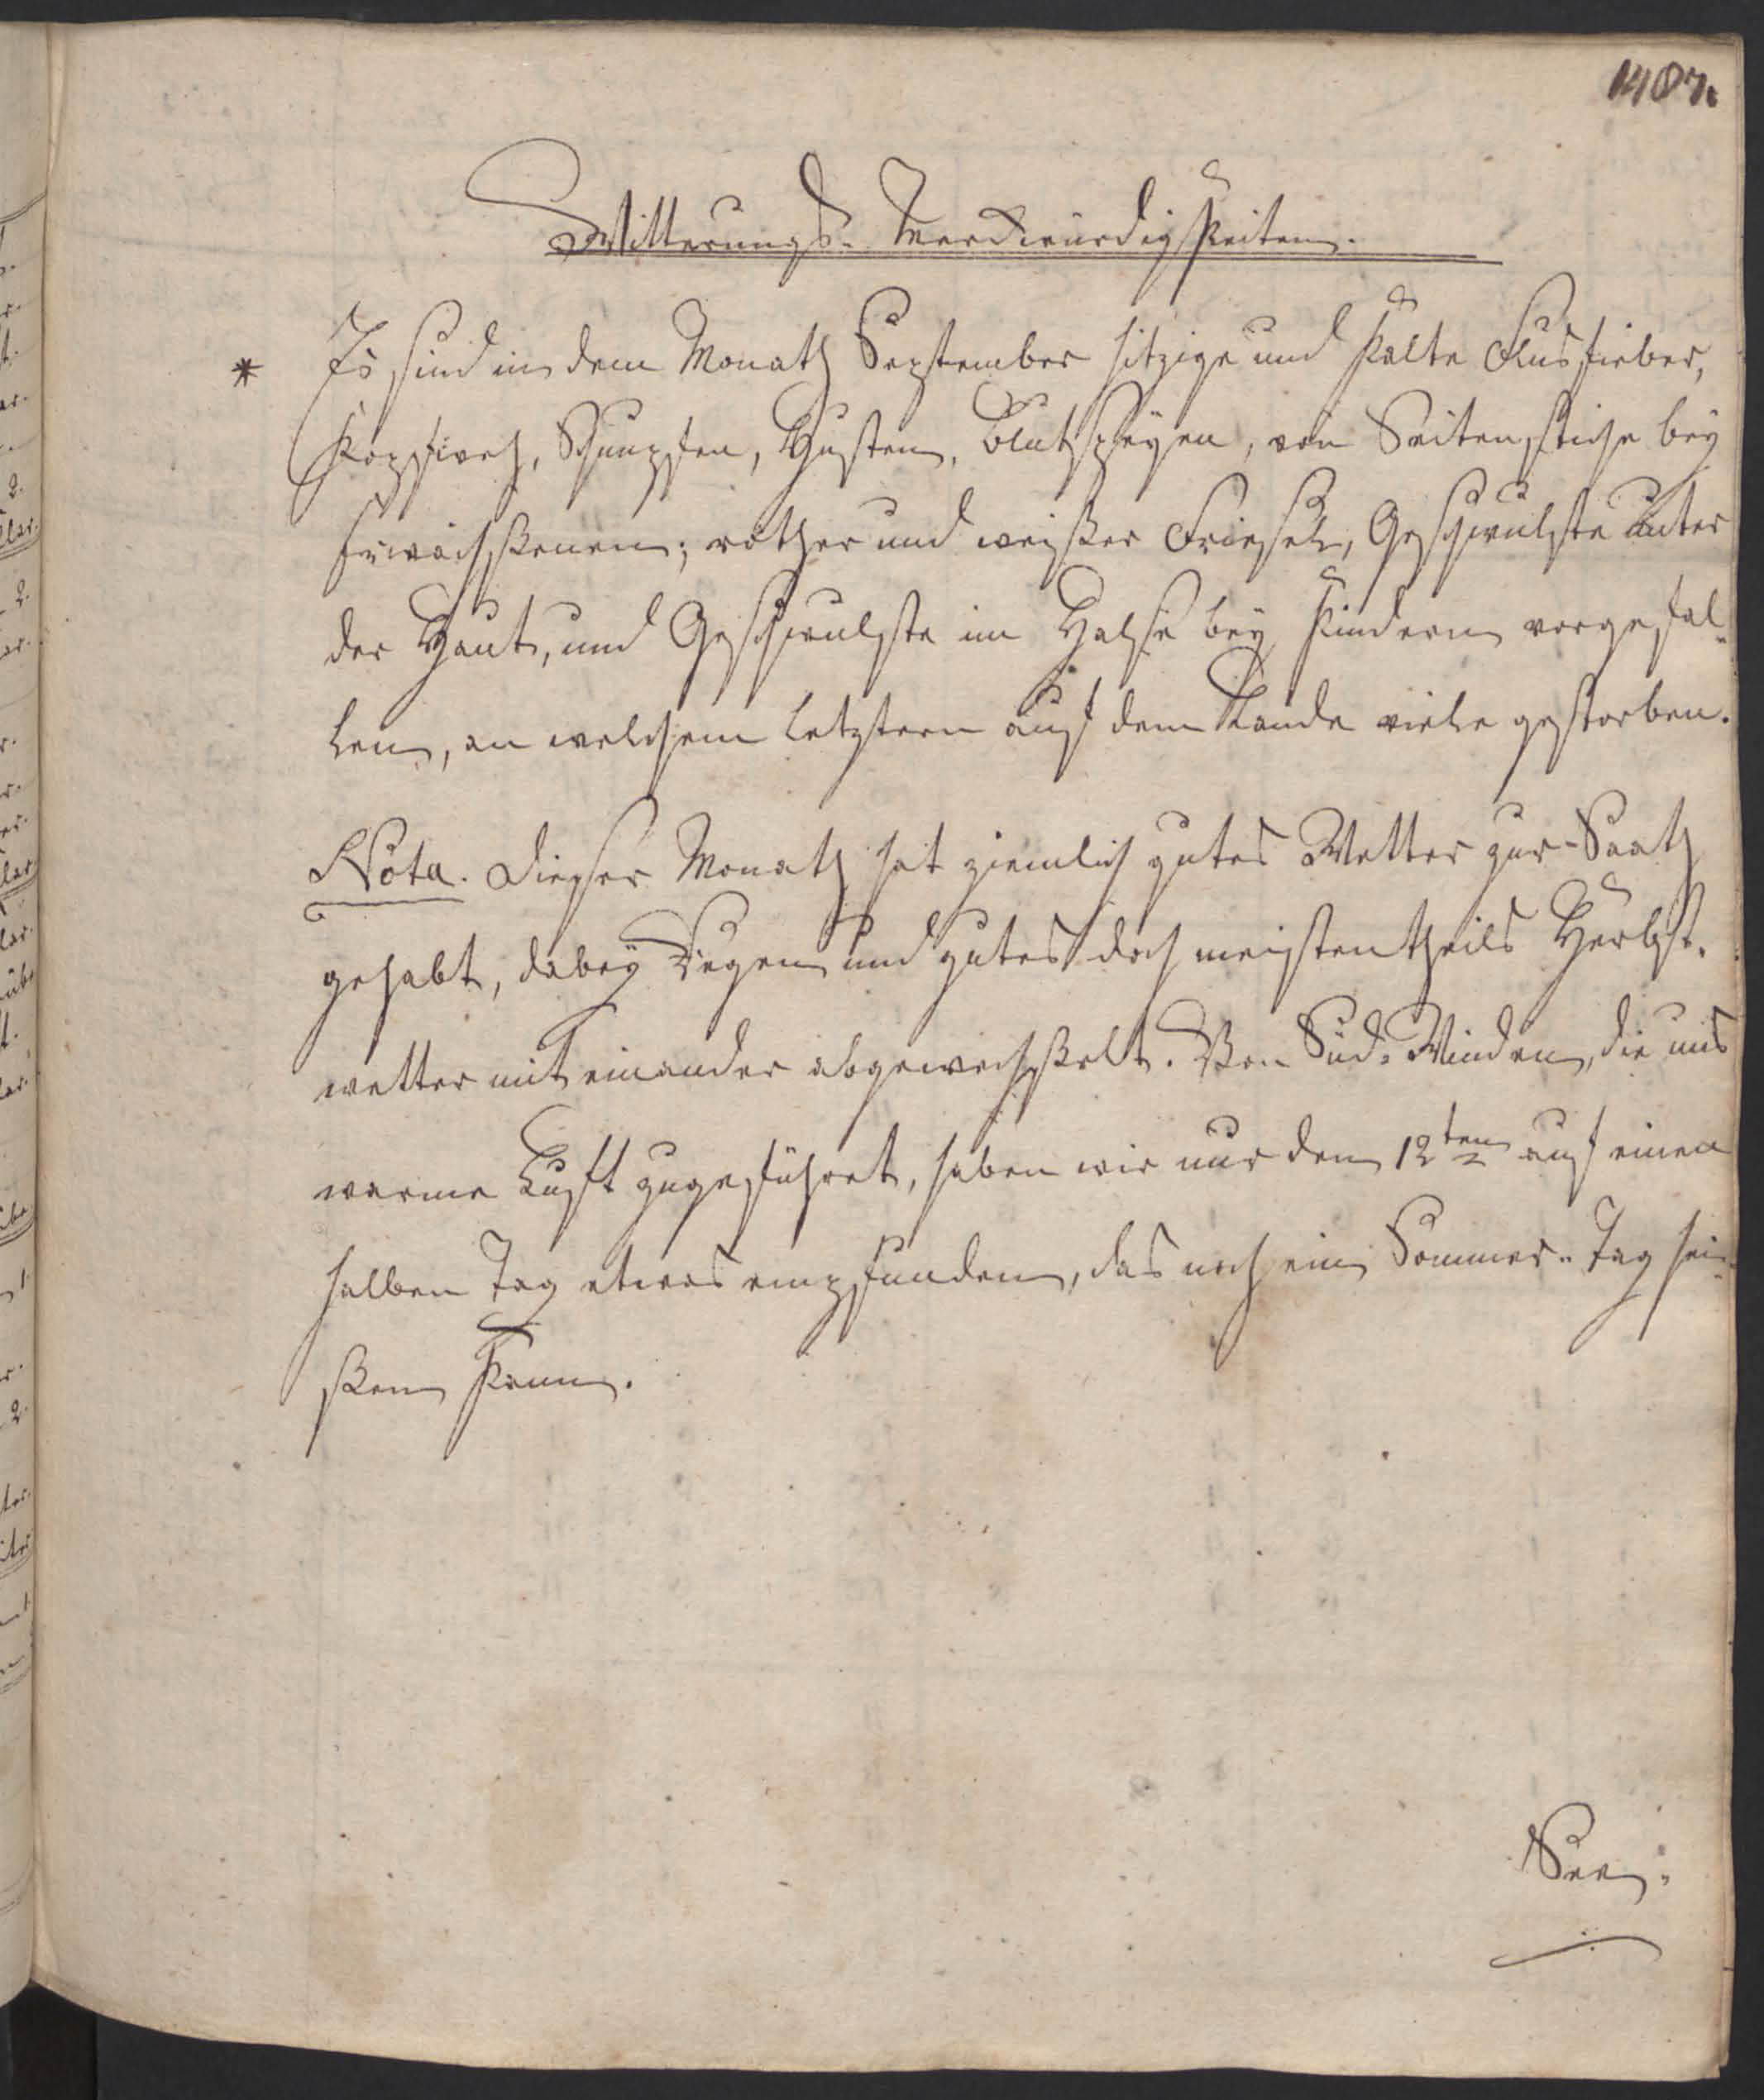 1407.
Witterungs- Merckwürdigkeiten.
* Es sind in dem Monath September hitzige und kalte Flusfieber,
Kopfweh, Schnupfen, Husten, Blutspeyen, von Seitenstiche bey
Erwachßenen; rother und weißer Friesel, Geschwulste unter
der Haut, und Geschwulste im Halse bey Kindern vorgefal-
len, an welchem letztern auf dem Lande viele gestorben.
Nota. Dieser Monath hat ziemlich gutes Wetter zur Saath
gehabt, dabey Regen und gutes doch meistentheils Herbst-
wetter mit einander abgewechßelt. Von Süd-Winden, die uns
warme Luft zugeführet, haben wir nur den 12ten auf einen
halben Tag etwas empfunden, das noch ein Sommer-Tag hei-
ßen kann.